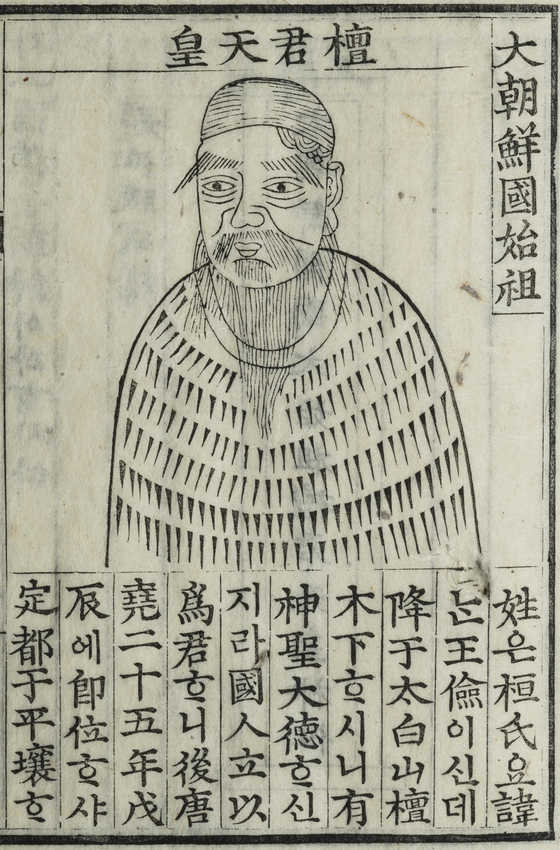 大朝鮮國始祖
檀君天皇
姓은桓氏요諱
는王儉이신데
降于太白山檀
木下ᄒᆞ시니有
神聖大德ᄒᆞ신
지라國人立以
爲君ᄒᆞ니後唐
堯二十五年戊
辰에卽位ᄒᆞ샤
定都于平壤ᄒᆞ